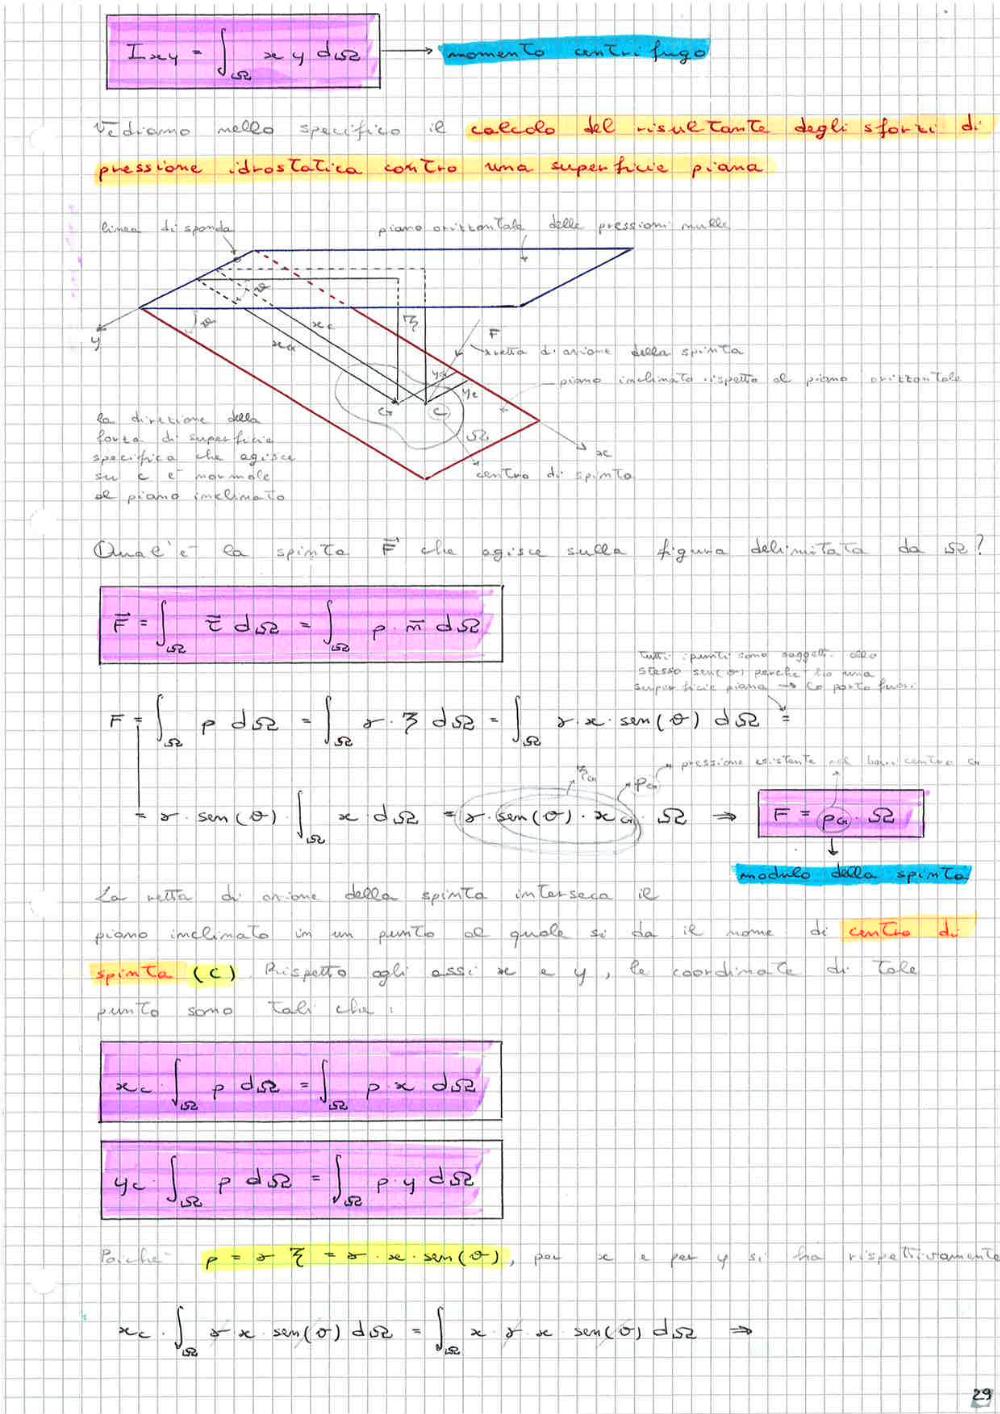 Ixy = ∫Ω x y dΩ → momento centrifugo
Vediamo nello specifico il calcolo del risultante degli sforzi di
pressione idrostatica contro una superficie piana
linea di sponda
piano orizzontale delle pressioni nulle
ϑ
ζ
y
ϑ
xc
xG
F
retta di azione della spinta
yG
yc
piano inclinato rispetto al piano orizzontale
G
C
Ω
x
centro di spinta
la direzione della
forza di superficie
specifica che agisce
su c è normale
al piano inclinato
Qual'è la spinta F⃗ che agisce sulla figura delimitata da Ω?
F⃗ = ∫Ω τ̄ dΩ = ∫Ω p · n̄ dΩ
tutti i punti sono soggetti allo
stesso sen(ϑ) perché ho una
superficie piana → lo porto fuori
F = ∫Ω p dΩ = ∫Ω γ · ζ dΩ = ∫Ω γ · x · sen(ϑ) dΩ =
ζG
pG
pressione esistente nel baricentro G
= γ sen(ϑ) · ∫Ω x dΩ = γ · sen(ϑ) · xG · Ω ⇒ F = pG · Ω
modulo della spinta
La retta di azione della spinta interseca il
piano inclinato in un punto al quale si da il nome di centro di
spinta (C). Rispetto agli assi x e y, le coordinate di tale
punto sono tali che:
xc · ∫Ω p dΩ = ∫Ω p x dΩ
yc · ∫Ω p dΩ = ∫Ω p · y dΩ
Poiché p = γ ζ = γ · x · sen(ϑ), per x e per y si ha rispettivamente
xc · ∫Ω γ x sen(ϑ) dΩ = ∫Ω x · γ x sen(ϑ) dΩ ⇒
29